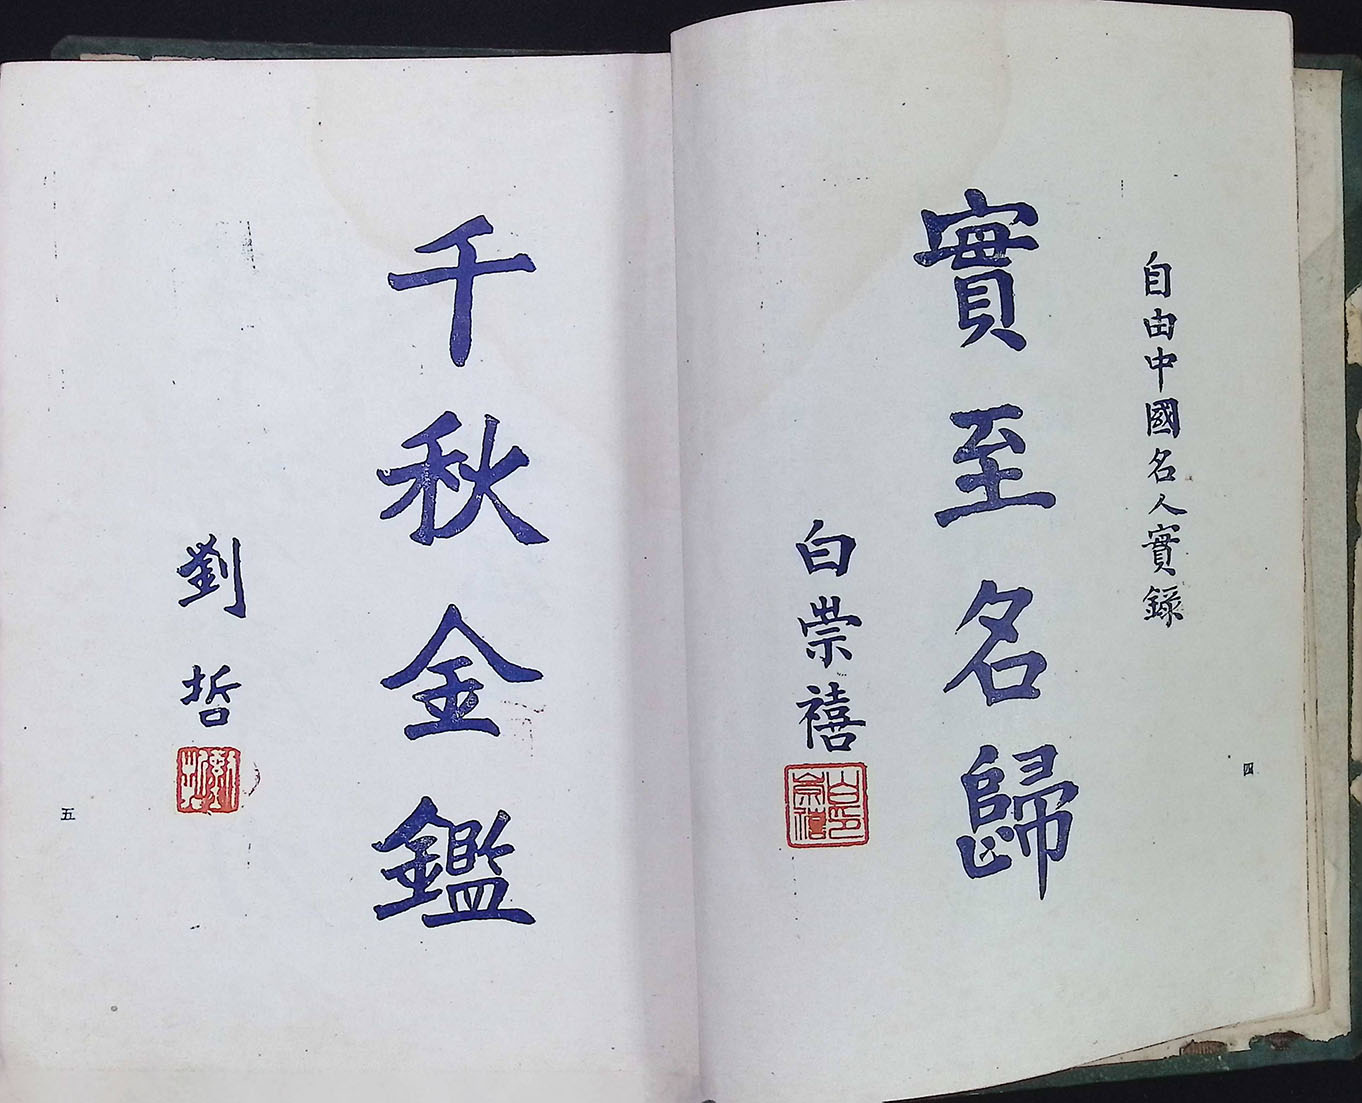 自由中國名人實錄
實至名歸
白崇禧
白崇禧印
四
千秋金鑑
劉哲
劉哲
五